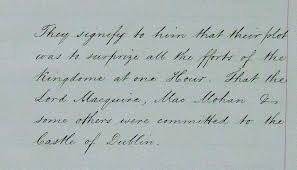 They signify to him that their plot
was to surprize all the fforts of the
Kingdome at one Hour. That the
Lord Macquire, Mac Mohan &
some others were committed to the
Castle of Dublin.